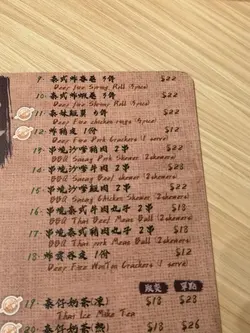 7. 泰式炸春卷 3件 $22
Deep Fire Spring Roll (3pics)
泰式炸蝦卷 3件 $22
Deep Fire Shrimp Roll (3pics)
Deep Fire chicken wings (6pics)
12. 炸豬皮 1份 $12
Deep Fire Pork Crackers (1 serve)
19. 串燒沙嗲豬肉 2串 $22
BBQ Satay Pork Skewer (2skewers)
14. 串燒沙嗲牛肉 2串 $23
BBQ Satay Beef Skewer (2skewers)
15. 串燒沙嗲雞肉 2串 $22
BBQ Satay Chicken Skewer (2skewers)
16. 串燒泰式牛肉丸子 2串 $18
BBQ Thai Beef Meat Ball (2skewers)
17. 串燒泰式豬肉丸子 2串 $18
BBQ Thai pork Meat Ball (2skewers)
18. 炸雲吞皮 1份 $12
Deep Fire WonTon Crackers (1 serve)
跟餐 單點
19. 泰式奶茶(凍) $18 $23
Thai Ice Milk Tea
泰式奶茶(熱) $18